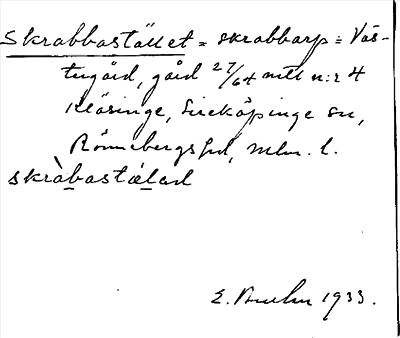 Skrabbastället = skrabbarp = Väs-
tugård, gård 27/64 mtl n:r 4
Klösinge, Sireköpinge sn,
Rönnebergs hd, Mlm. l.
skràbastälad
E. Bruhn 1933.